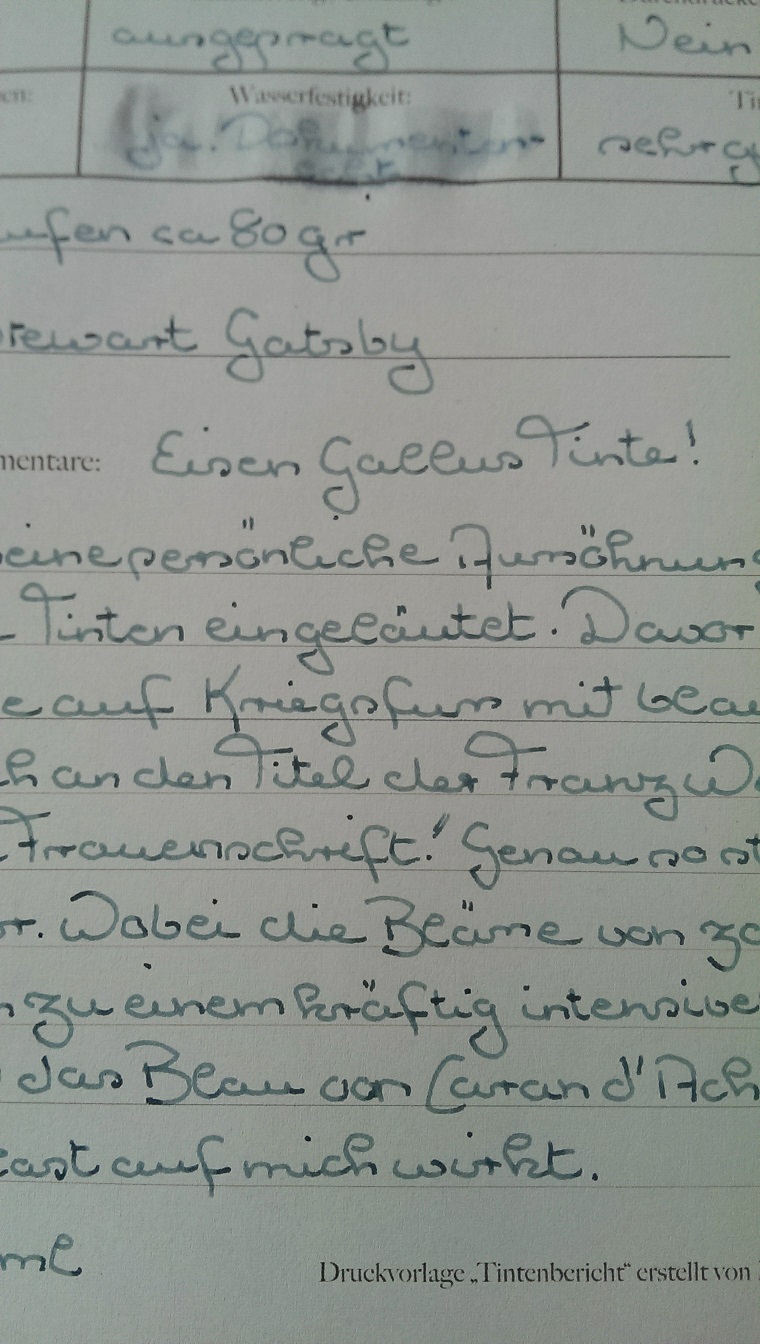 ausgeprägt Nein
en: Wasserfestigkeit: Ti
ja. Dokumenten- sehr g
echt
ufen ca 80 gr
tewart Gatsby
mentare: Eisen Gallus Tinte!
eine persönliche Aussöhnung
Tinten eingeläutet. Davor
e auf Kriegsfuss mit blau
h an den Titel der Franz W
Frauenschrift! Genau so st
r. Wobei die Bläme von za
n zu einem kräftig intensive
das Blau von Caran d'Ach
east auf mich wirkt.
me
Druckvorlage „Tintenbericht“ erstellt von